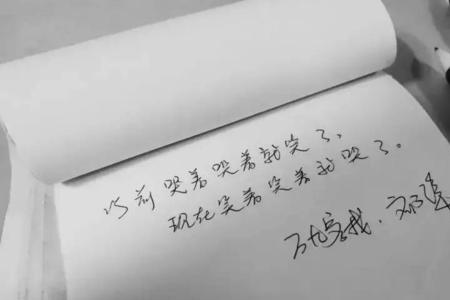 以前哭着哭着就笑了，
现在笑着笑着就哭了。